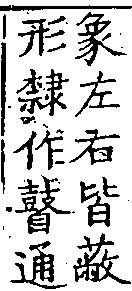 象左右皆蔽
形隸作瞽通